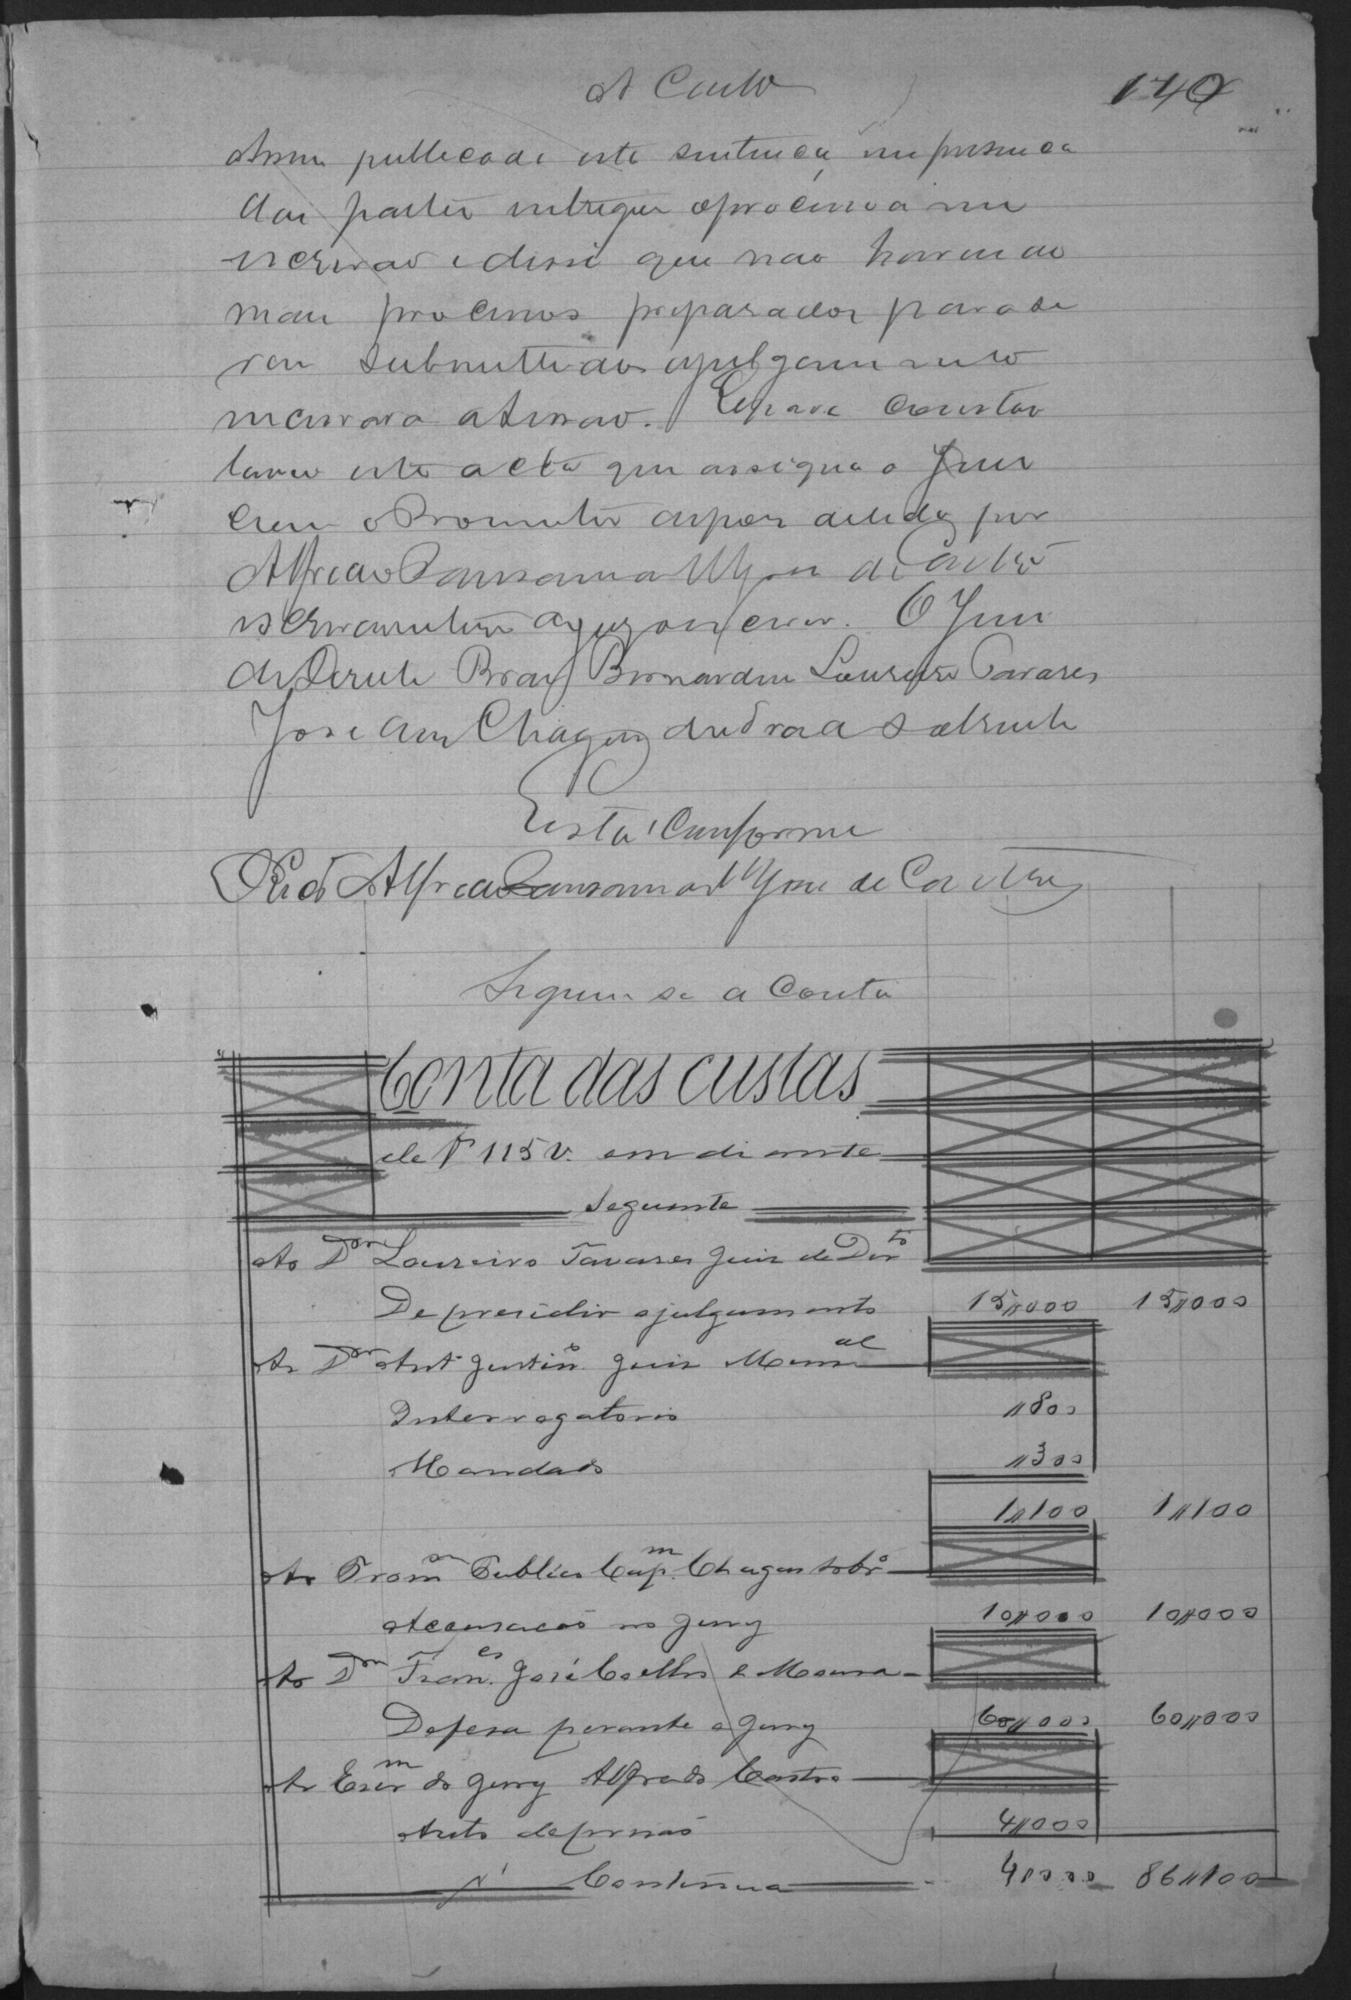 A Conta
140
publicada esta sentença em presença
das partes entregou o processo a mim
escrivão e disse que não havendo
mais processos preparados para se
rem submettidos a julgamento
a sessão. E para constar
lavro esta acta que assigna o Juiz
com o Promotor por
Alfredo de Castro
escrevente o escrevi. O Juiz
de Direito Braz Bernardino Loureiro Tavares
José das Chagas Andrade Sobrinho
Está Conforme
Alfredo de Castro
Segue-se a Conta
Conta das custas
de f 115 v. em diante
Seguinte
Ao Dor Loureiro Tavares Juiz de Dirto
De presidir o julgamento 15,,000 15,,000
Ao Dor Anto Justino Juiz Munal
Interrogatorio ,,800
Mandado ,,300
1,,100 1,,100
Ao Prom Publico Capm Chagas Sobro
Accusação no jury 10,,000 10,,000
Ao Dor Francs José Coelho e Moura
Defesa perante o jury 60,,000 60,,000
Ao Escrm do jury Alfredo Castro
Auto de prisão 4,,000
Continua 4,,000 86,,100